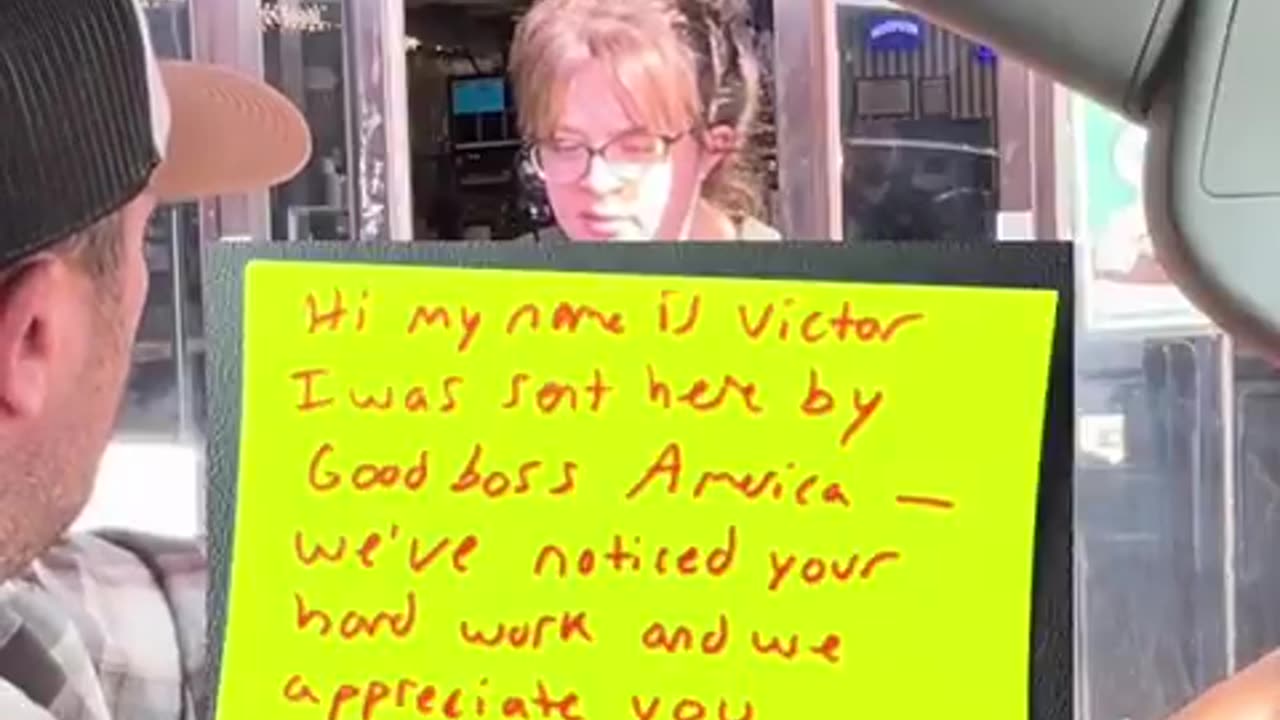 Hi my name is Victor
I was sent here by
Good boss America —
we've noticed your
hard work and we
appreciate you